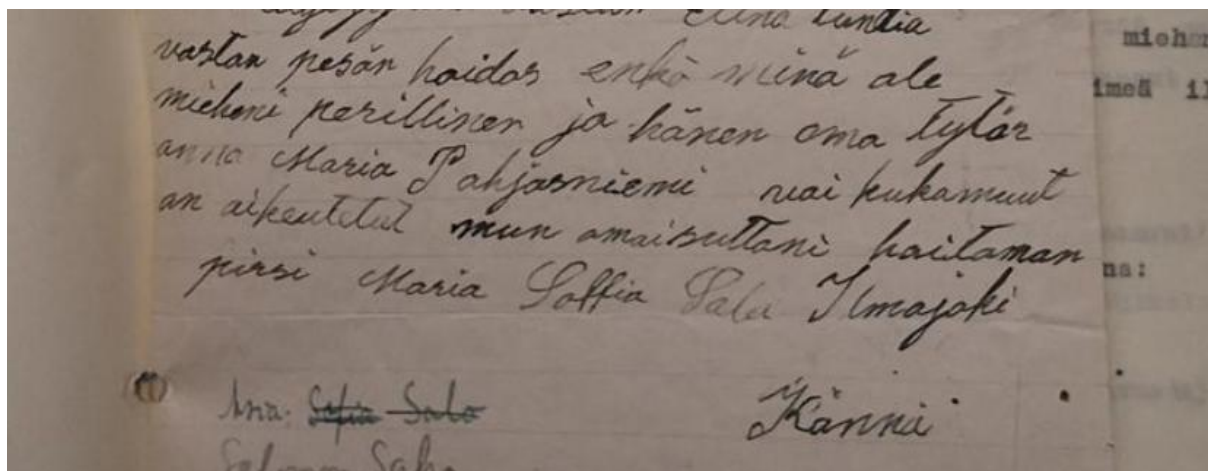 Elina tuntia
vastan pesän hoidos enkö minä ole
mieheni perillinen ja hänen oma tytär
anna Maria Pohjasniemi vai kukamuut
an oikeutetut mun omaisuttani hoitaman
pirsi Maria Soffia Salu Ilmajoki
Asia: Sofia Salo
Känni
Salo
mieh
imeä il
na: